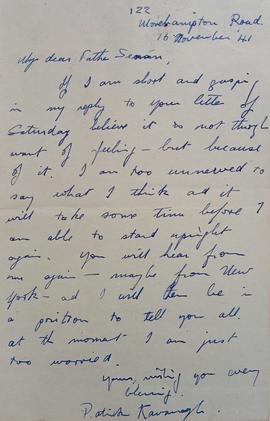 122
Morehampton Road
16 November '41
My dear Father Senan,
If I am short and gasping
in my reply to your letter of
Saturday believe it is not through
want of feeling – but because
of it. I am too unnerved to
say what I think ad it
will take some time before I
am able to stand upright
again. You will hear from
me again – maybe from New
York – ad I will then be in
a position to tell you all.
at the moment I am just
too worried.
Yours, wishing you every
blessing.
Patrick Kavanagh.